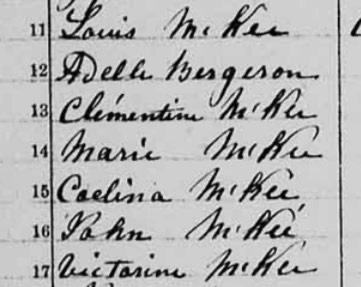 11 Louis McKee
12 Adelle Bergeron
13 Clémentine McKee
14 Marie McKee
15 Coelina McKee
16 John McKee
17 Victorine McKee